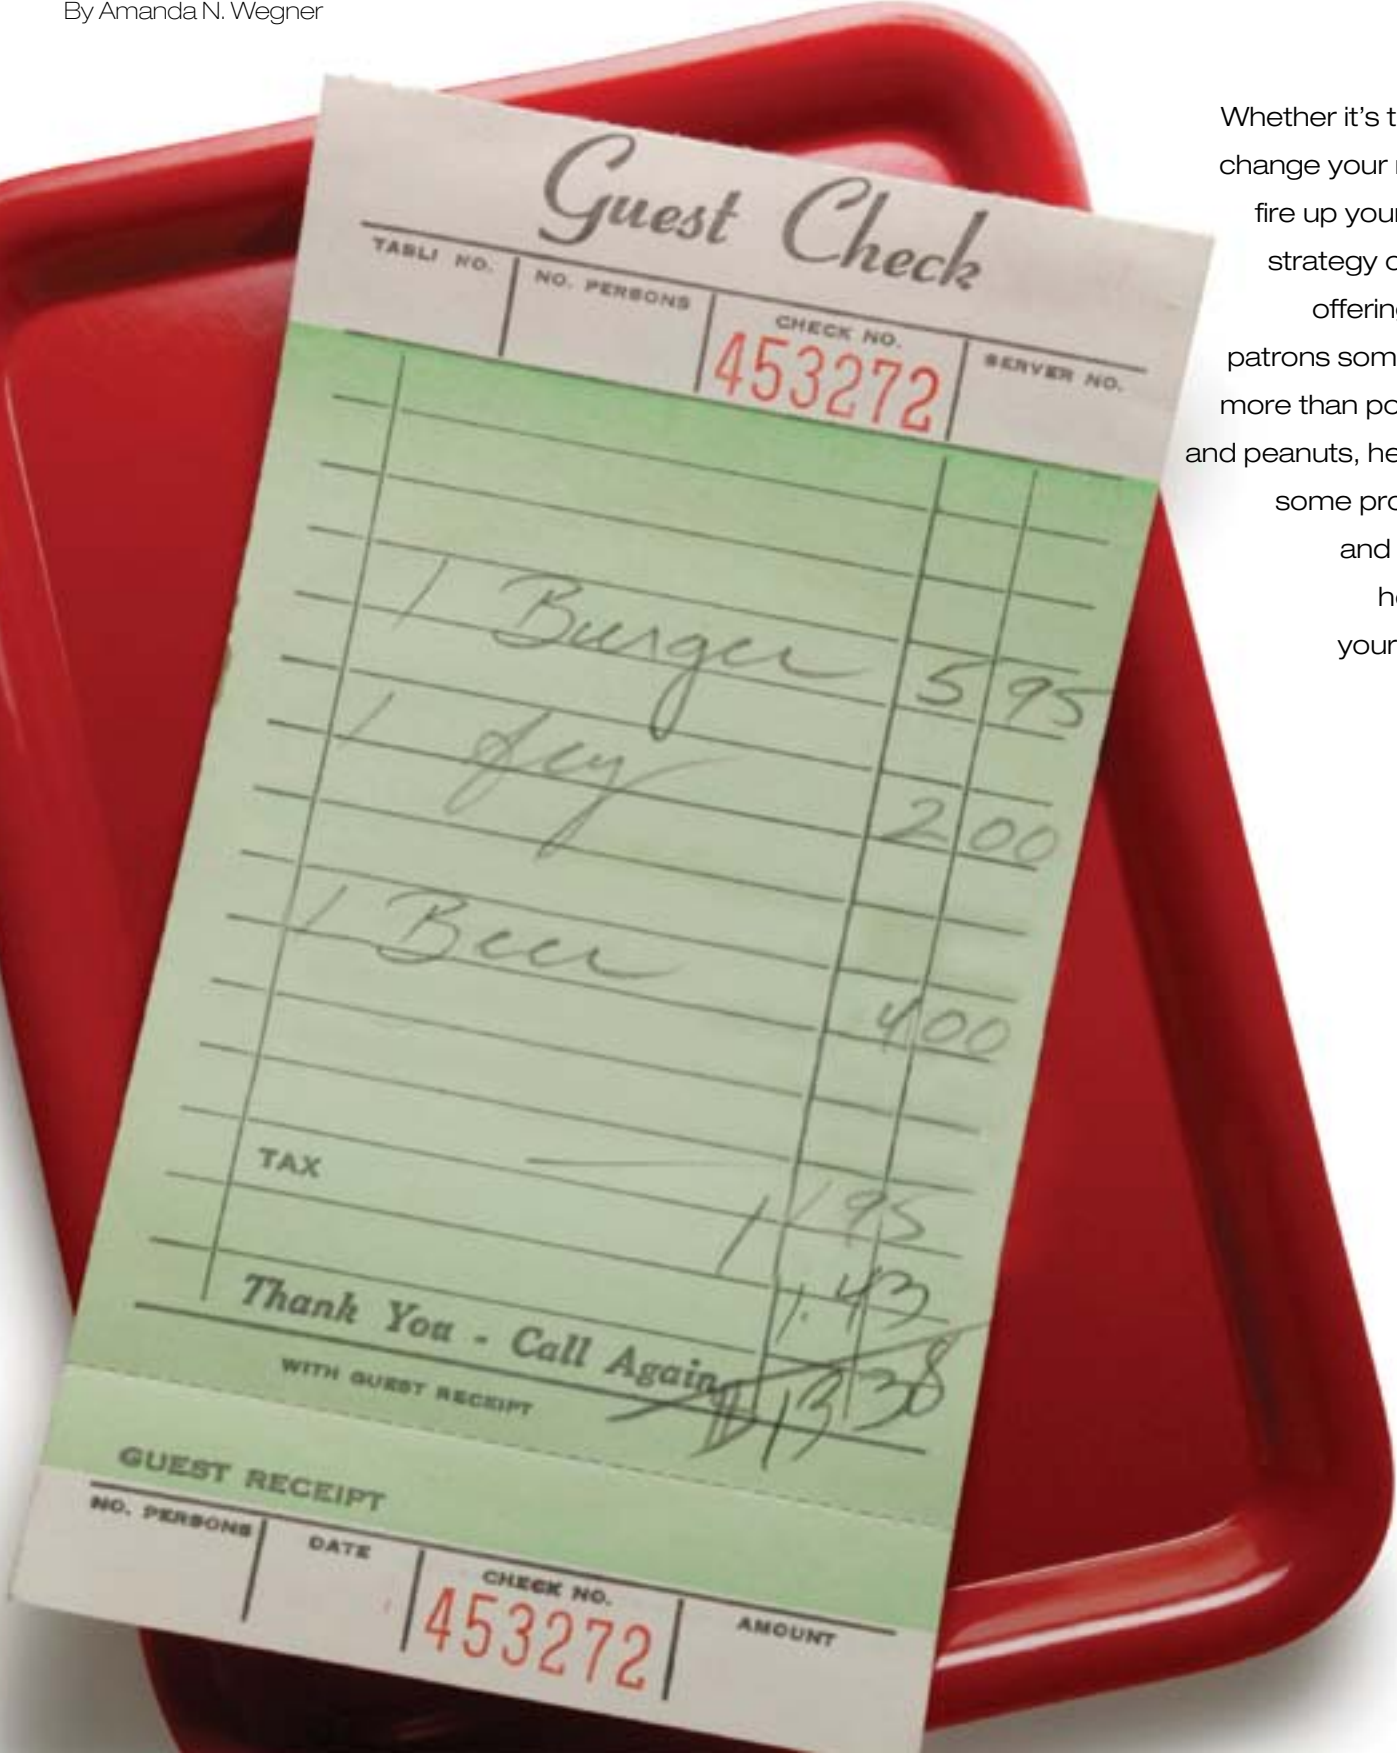 By Amanda N. Wegner
Whether it's t
change your
fire up your
strategy
offerin
patrons som
more than po
and peanuts, he
some pro
and
h
your
Guest Check
TABLE NO. NO. PERSONS CHECK NO. SERVER NO.
453272
1 Burger 5 95
1 fry 2 00
1 Beer 4 00
TAX
11 95
1.43
Thank You - Call Again
$13 38
WITH GUEST RECEIPT
GUEST RECEIPT
NO. PERSONS DATE CHECK NO. AMOUNT
453272